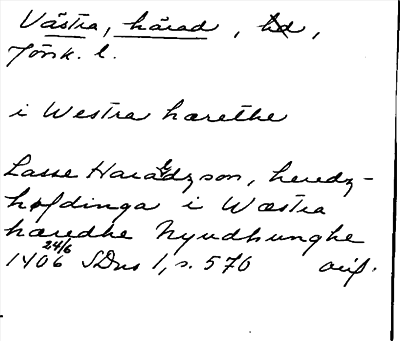 Västra, härad, hd,
Jönk. l.
i Westra hærethe
Lasse Haraldzson, heredz-
hofdinga i Wæstra
hæredhe Nyudhunghe
1406 24/6 SDns 1, s. 570 avs.